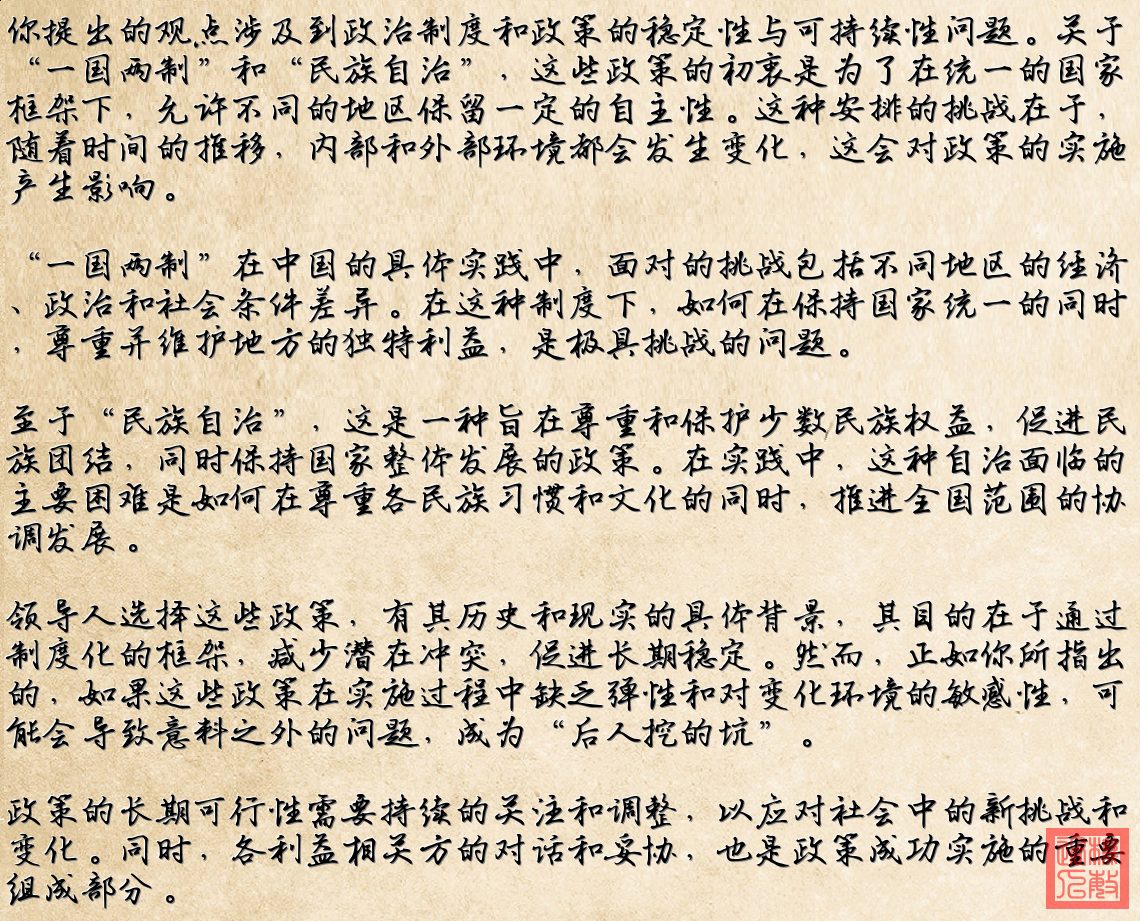 你提出的观点涉及到政治制度和政策的稳定性与可持续性问题。关于
“一国两制”和“民族自治”，这些政策的初衷是为了在统一的国家
框架下，允许不同的地区保留一定的自主性。这种安排的挑战在于，
随着时间的推移，内部和外部环境都会发生变化，这会对政策的实施
产生影响。
“一国两制”在中国的具体实践中，面对的挑战包括不同地区的经济
、政治和社会条件差异。在这种制度下，如何在保持国家统一的同时
，尊重并维护地方的独特利益，是极具挑战的问题。
至于“民族自治”，这是一种旨在尊重和保护少数民族权益，促进民
族团结，同时保持国家整体发展的政策。在实践中，这种自治面临的
主要困难是如何在尊重各民族习惯和文化的同时，推进全国范围的协
调发展。
领导人选择这些政策，有其历史和现实的具体背景，其目的在于通过
制度化的框架，减少潜在冲突，促进长期稳定。然而，正如你所指出
的，如果这些政策在实施过程中缺乏弹性和对变化环境的敏感性，可
能会导致意料之外的问题，成为“后人挖的坑”。
政策的长期可行性需要持续的关注和调整，以应对社会中的新挑战和
变化。同时，各利益相关方的对话和妥协，也是政策成功实施的重要
组成部分。